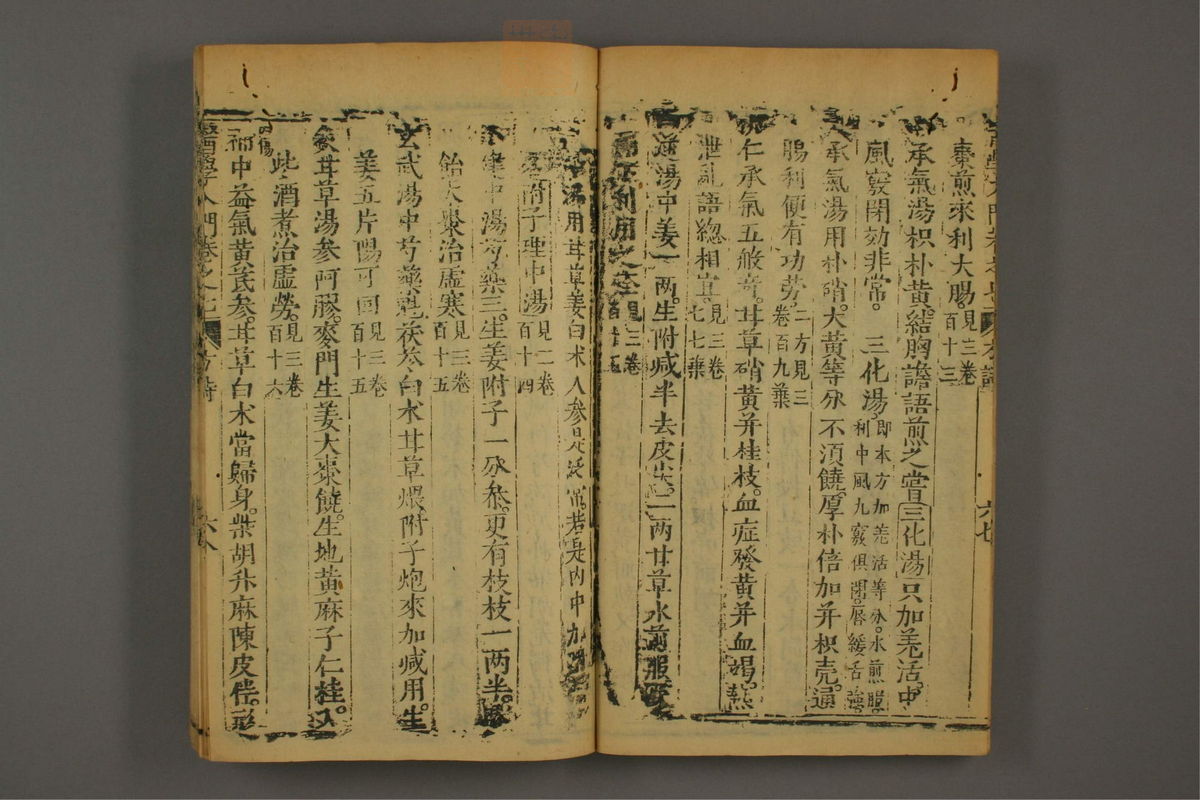 棗煎來利大腸見三卷百十三
承氣湯枳朴黃結胸譫語煎之嘗三化湯只加羌活中
風竅閉効非常。三化湯即本方加羌活等分水煎服利中風九竅俱閉唇緩舌強
承氣湯用朴硝大黃等分不須饒厚朴倍加并枳壳通
腸利便有功勞二方見三卷百九葉
仁承氣五般奇甘草硝黃并桂枝血症發黃并血竭熱
泄亂語緫相宜見三卷七七葉
逆湯中姜一两生附減半去皮尖二两甘草水煎服
利用之全見三卷百十五
湯用甘草姜白术人參是
附子理中湯見二卷百十四
建中湯芍藥三生姜附子一分參更有枝枝一两半
飴大棗治虛寒見三卷百十五
玄武湯中芍藥魁茯苓白术甘草煨附子炮來加減用生
姜五片陽可回見三卷百十五
炙甘草湯參阿膠麥門生姜大棗饒生地黃麻子仁桂又
些酒煮治虛勞見三卷百十六
補中益氣黃芪參甘草白术當歸身柴胡升麻陳皮
醫學入門卷之七
六八
六七